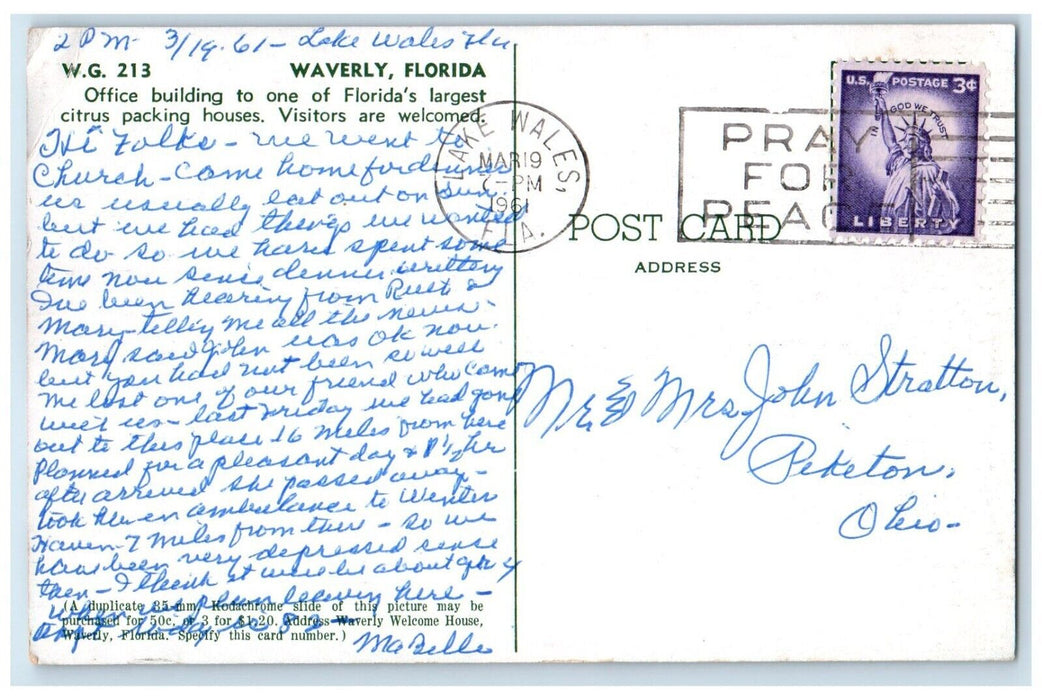 2 PM 3/19-61- Lake Wales Fla
W.G. 213 WAVERLY, FLORIDA
Office building to one of Florida's largest
citrus packing houses. Visitors are welcomed.
Hi Folks - we went to
Church - Came home for dinner
us usually eat out on Sun.
but we had things we wanted
to do so we have spent some
time now sense dinner writting
I've been hearing from Ruth &
Mary - telling me all the news -
Mary said John was OK now.
but you had not been so well
We lost one of our friend who came
with us - last Friday we had gone
out to this place 16 miles from here
Planned for a pleasant day & 1½ hr
after arrived she passed away -
took her in ambulance to Winter
Haven 7 miles from there - so we
have been very depressed sense
then - I think it will be about
when we plan leaving here -
today is 80
MaBelle
(A duplicate 35-mm. Kodachrome slide of this picture may be
purchased for 50c. or 3 for $1.20. Address Waverly Welcome House,
Waverly, Florida. Specify this card number.)
LAKE WALES,
MAR 19
PM
1961
FLA.
PRAY
FOR
PEACE
U.S. POSTAGE 3¢
IN GOD WE TRUST
LIBERTY
POST CARD
ADDRESS
Mr & Mrs John Stratton,
Piketon,
Ohio-